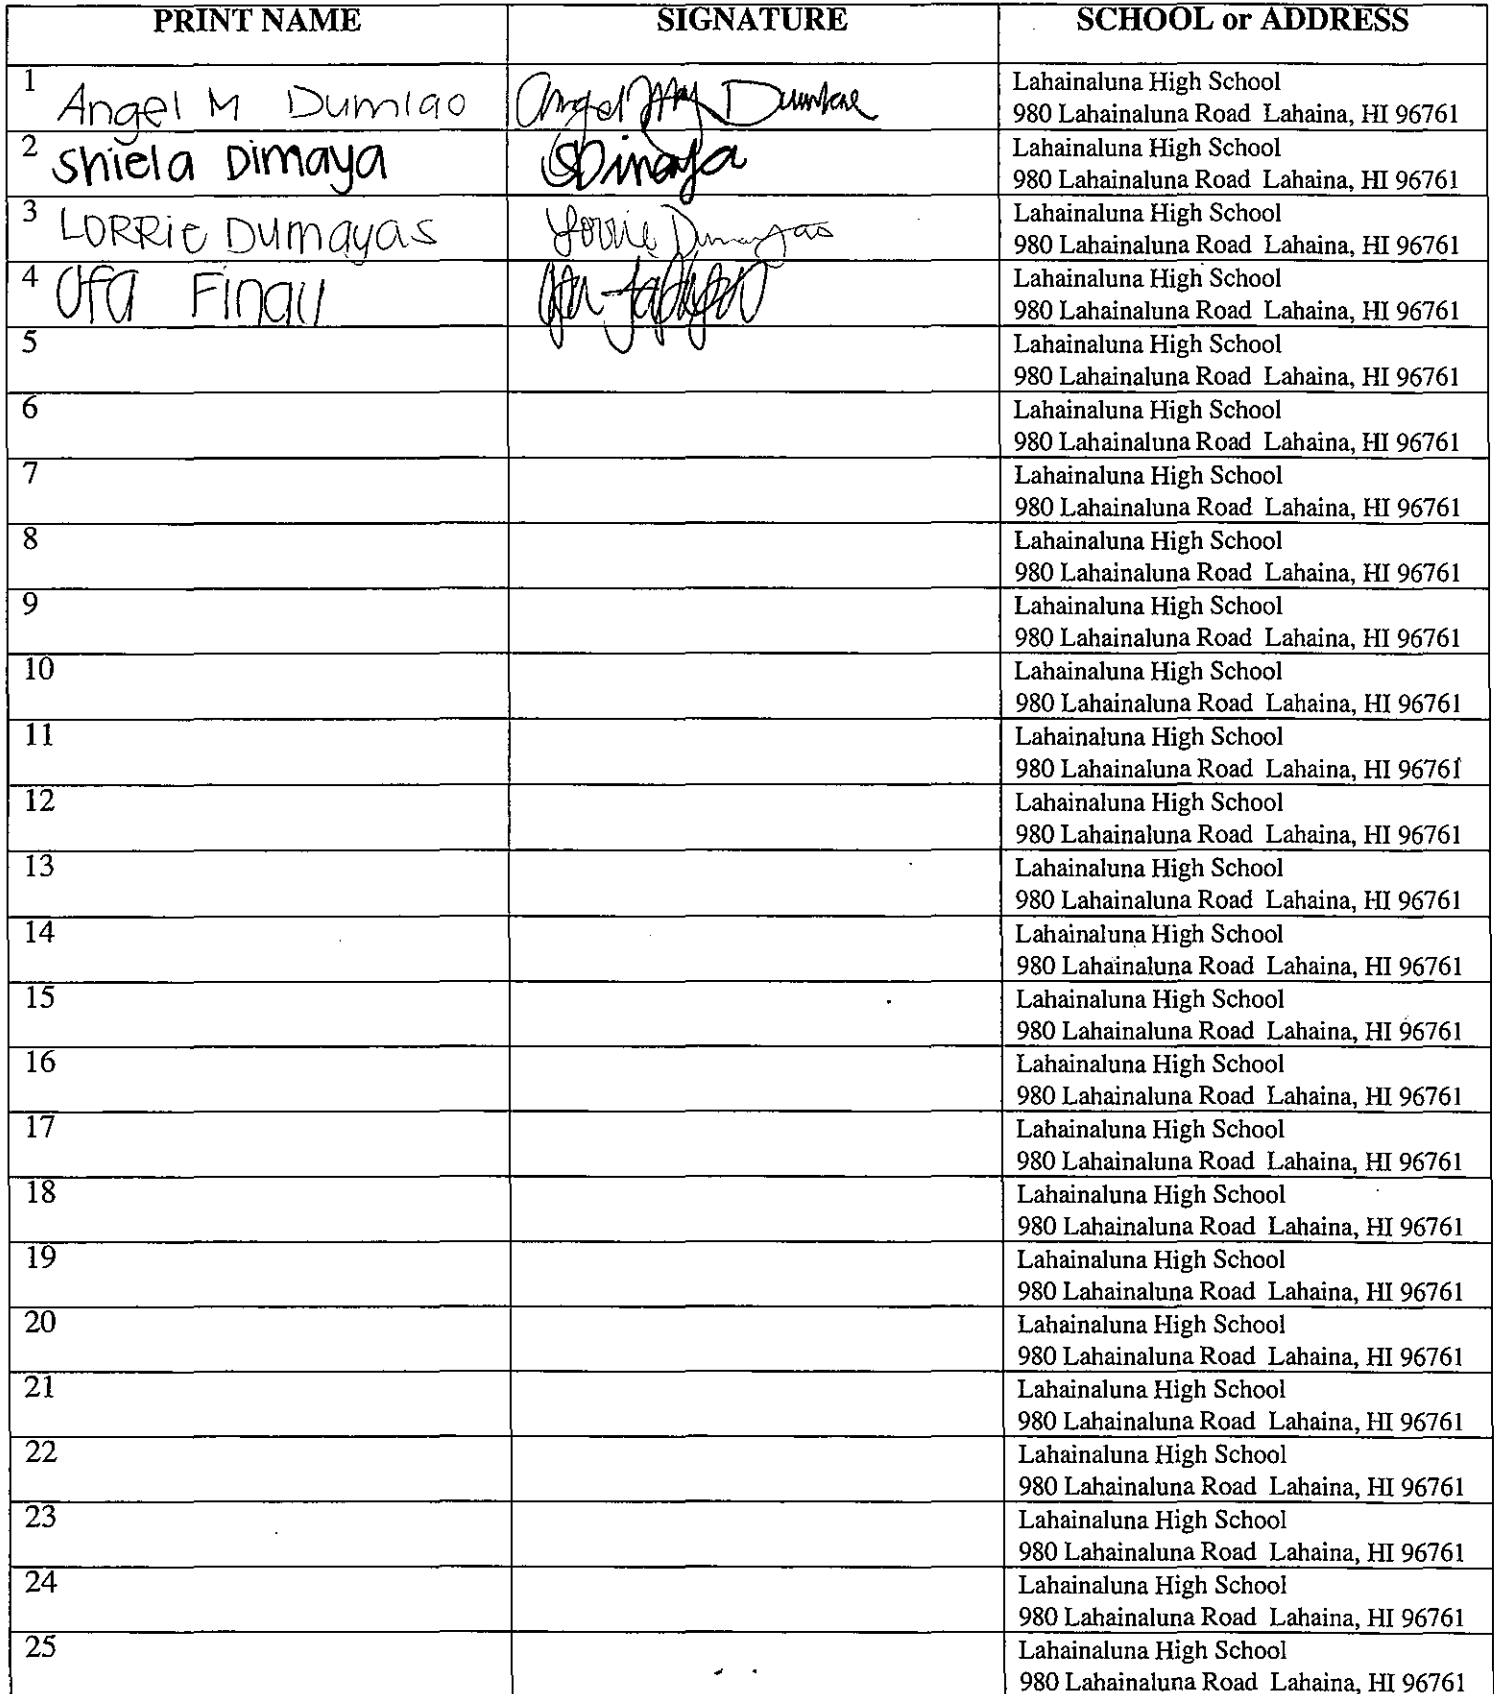 PRINT NAME SIGNATURE SCHOOL or ADDRESS
1 Angel M Dumlao Angel M Dumlao Lahainaluna High School
980 Lahainaluna Road Lahaina, HI 96761
2 Shiela Dimaya SDimaya Lahainaluna High School
980 Lahainaluna Road Lahaina, HI 96761
3 LORRie Dumayas Lorrie Dumayas Lahainaluna High School
980 Lahainaluna Road Lahaina, HI 96761
4 Ofa Finau Lahainaluna High School
980 Lahainaluna Road Lahaina, HI 96761
5 Lahainaluna High School
980 Lahainaluna Road Lahaina, HI 96761
6 Lahainaluna High School
980 Lahainaluna Road Lahaina, HI 96761
7 Lahainaluna High School
980 Lahainaluna Road Lahaina, HI 96761
8 Lahainaluna High School
980 Lahainaluna Road Lahaina, HI 96761
9 Lahainaluna High School
980 Lahainaluna Road Lahaina, HI 96761
10 Lahainaluna High School
980 Lahainaluna Road Lahaina, HI 96761
11 Lahainaluna High School
980 Lahainaluna Road Lahaina, HI 96761
12 Lahainaluna High School
980 Lahainaluna Road Lahaina, HI 96761
13 Lahainaluna High School
980 Lahainaluna Road Lahaina, HI 96761
14 Lahainaluna High School
980 Lahainaluna Road Lahaina, HI 96761
15 Lahainaluna High School
980 Lahainaluna Road Lahaina, HI 96761
16 Lahainaluna High School
980 Lahainaluna Road Lahaina, HI 96761
17 Lahainaluna High School
980 Lahainaluna Road Lahaina, HI 96761
18 Lahainaluna High School
980 Lahainaluna Road Lahaina, HI 96761
19 Lahainaluna High School
980 Lahainaluna Road Lahaina, HI 96761
20 Lahainaluna High School
980 Lahainaluna Road Lahaina, HI 96761
21 Lahainaluna High School
980 Lahainaluna Road Lahaina, HI 96761
22 Lahainaluna High School
980 Lahainaluna Road Lahaina, HI 96761
23 Lahainaluna High School
980 Lahainaluna Road Lahaina, HI 96761
24 Lahainaluna High School
980 Lahainaluna Road Lahaina, HI 96761
25 Lahainaluna High School
980 Lahainaluna Road Lahaina, HI 96761